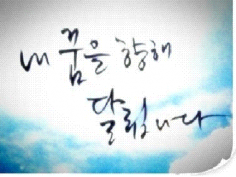 내 꿈을 향해
달립니다